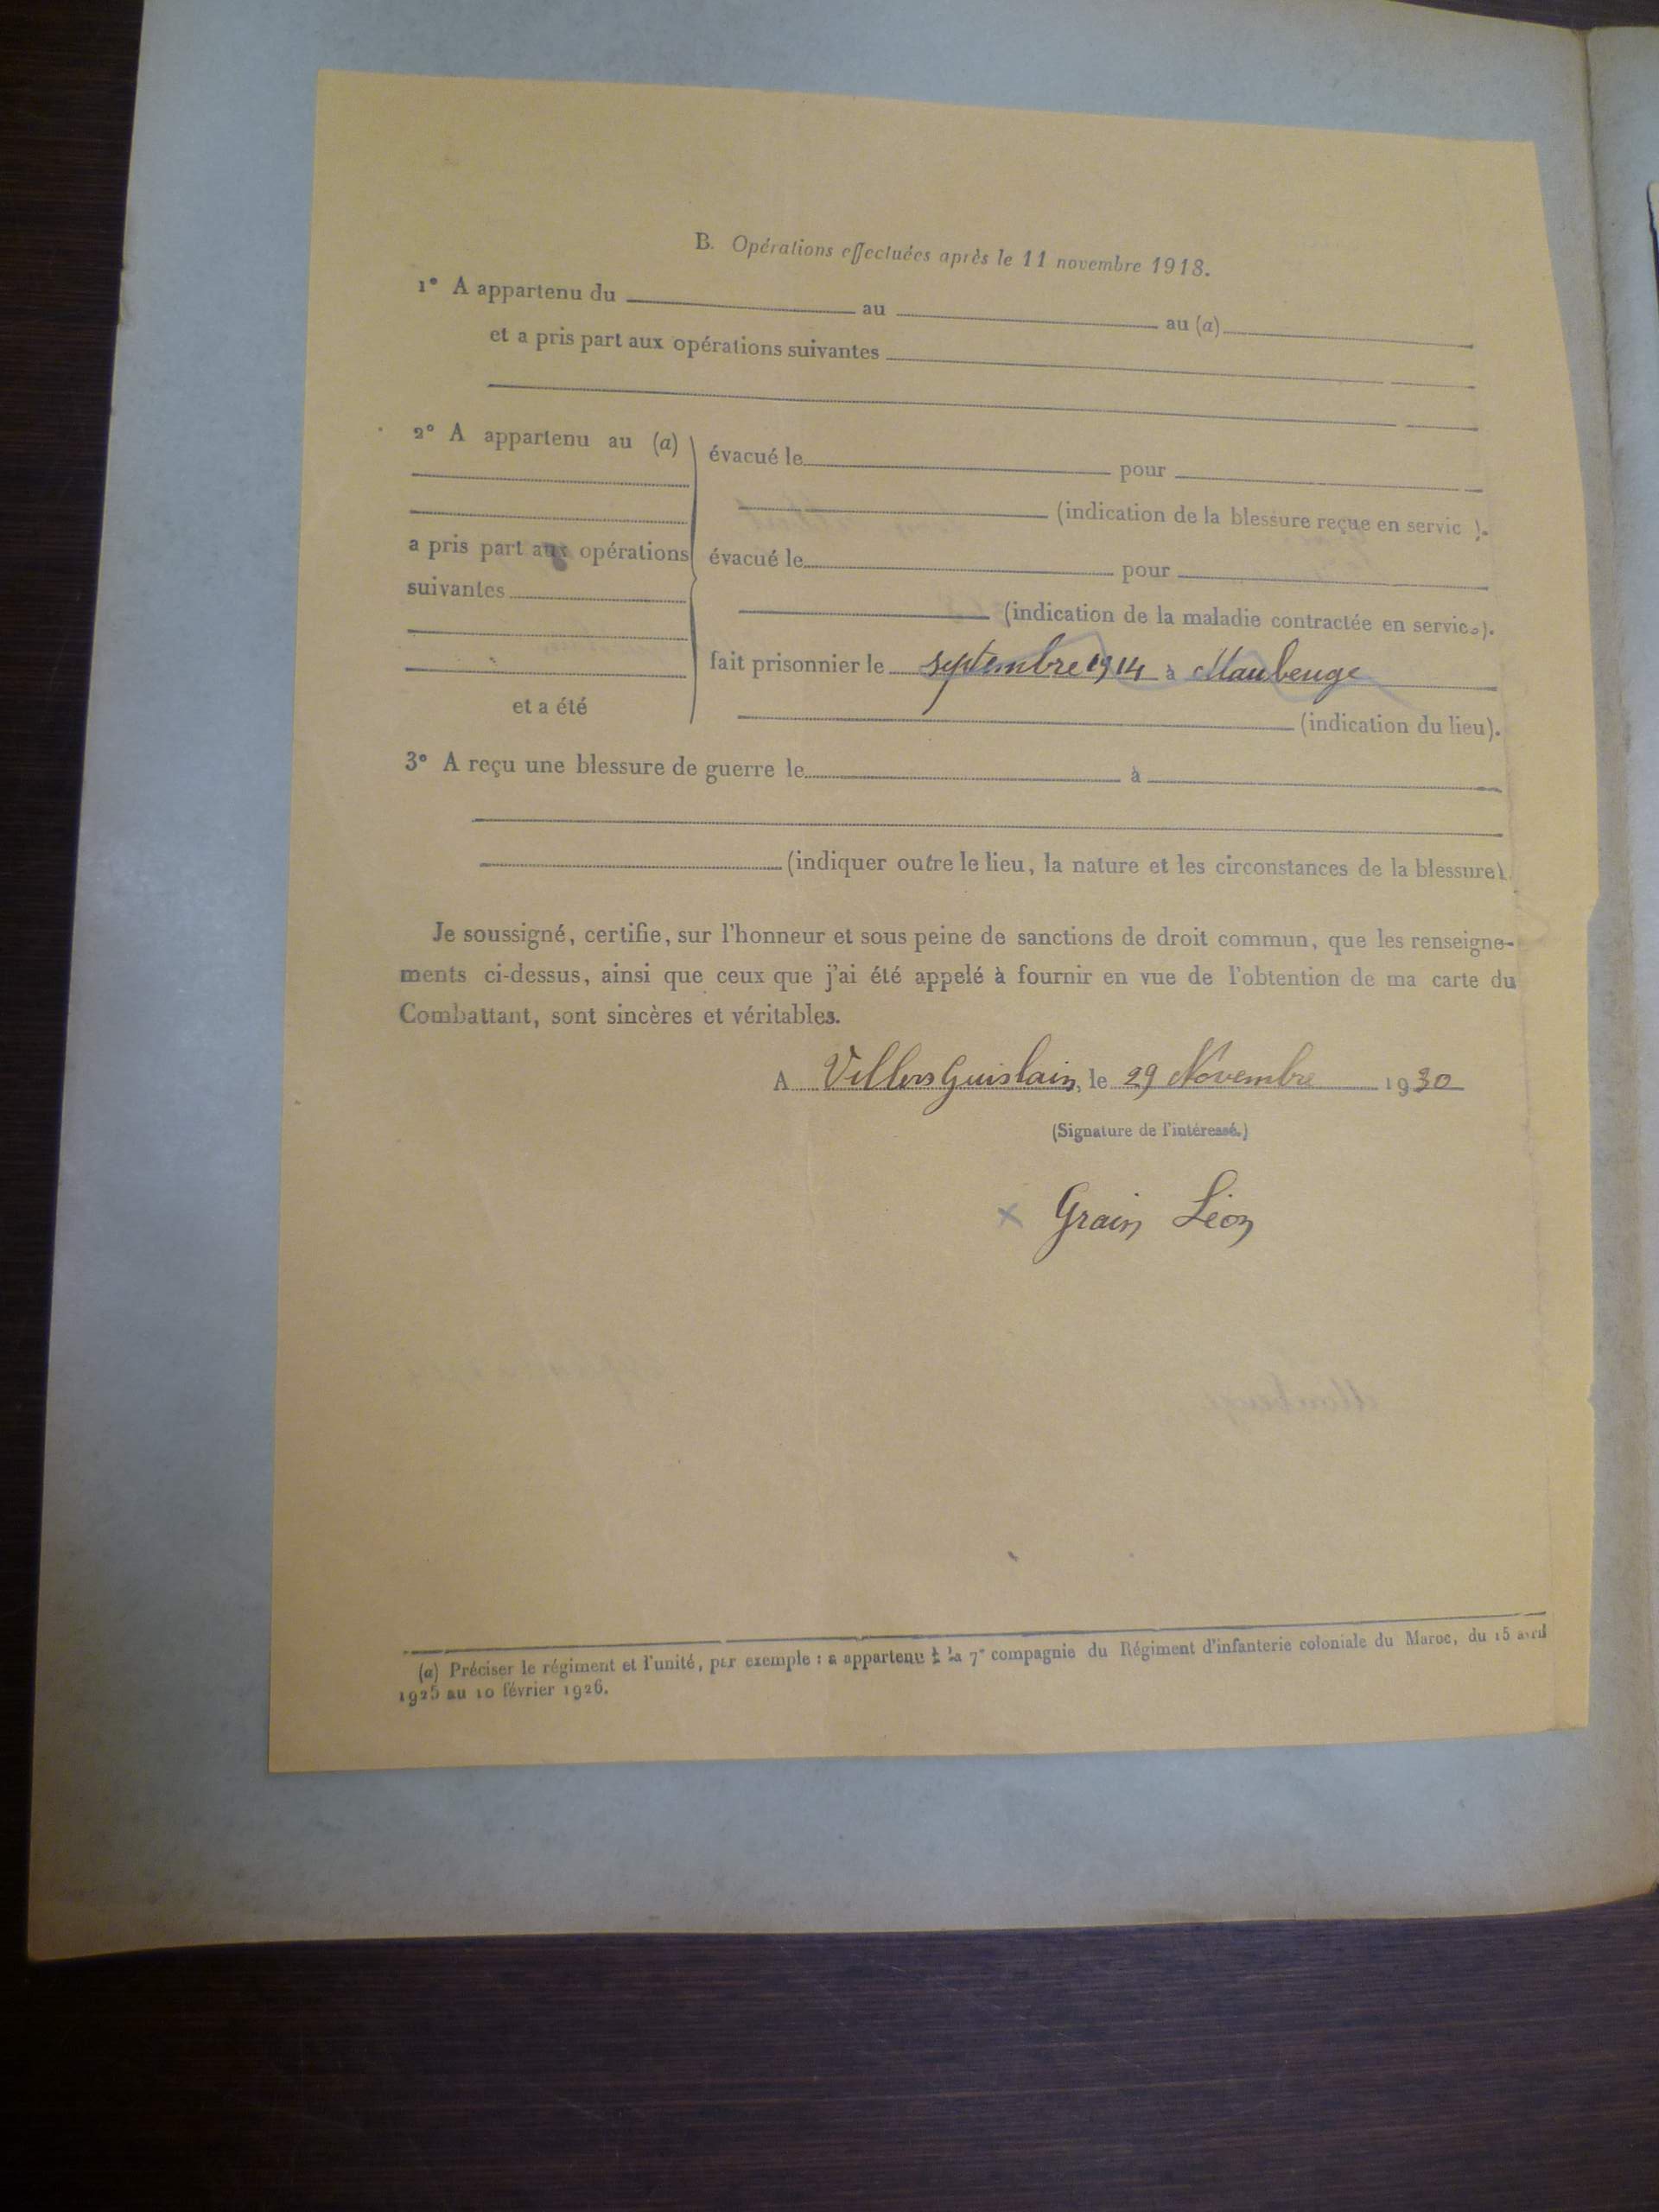 B. Opérations effectuées après le 11 novembre 1918.
1° A appartenu du au au (a)
et a pris part aux opérations suivantes
2° A appartenu au (a)
évacué le pour
(indication de la blessure reçue en servic ).
a pris part aux opérations
évacué le pour
suivantes
(indication de la maladie contractée en service).
fait prisonnier le septembre 1914 à Maubeuge
et a été
(indication du lieu).
3° A reçu une blessure de guerre le à
(indiquer outre le lieu, la nature et les circonstances de la blessure).
Je soussigné, certifie, sur l'honneur et sous peine de sanctions de droit commun, que les renseigne-
ments ci-dessus, ainsi que ceux que j'ai été appelé à fournir en vue de l'obtention de ma carte du
Combattant, sont sincères et véritables.
A Villers Guislain, le 29 Novembre 1930
(Signature de l'intéressé.)
x Grain Léon
(a) Préciser le régiment et l'unité, par exemple : a appartenu à la 7e compagnie du Régiment d'infanterie coloniale du Maroc, du 15 avril
1925 au 10 février 1926.